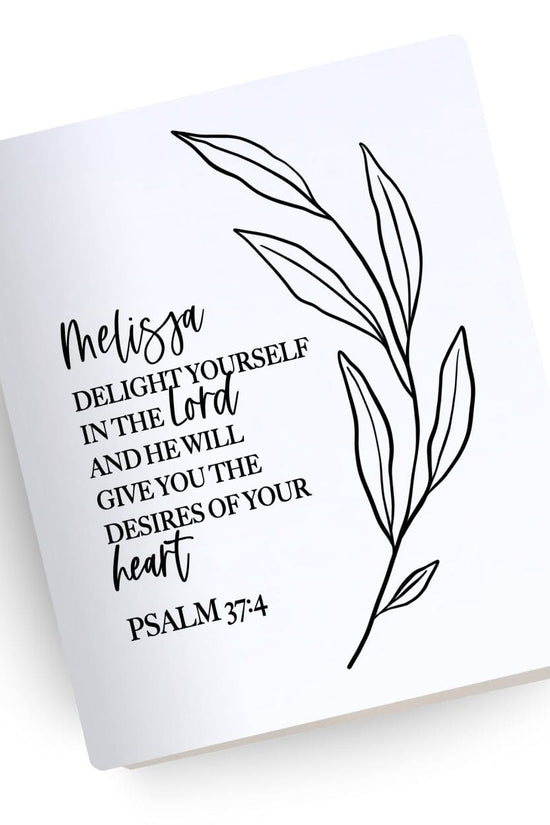 Melissa
DELIGHT YOURSELF
IN THE Lord
AND HE WILL
GIVE YOU THE
DESIRES OF YOUR
heart
PSALM 37:4